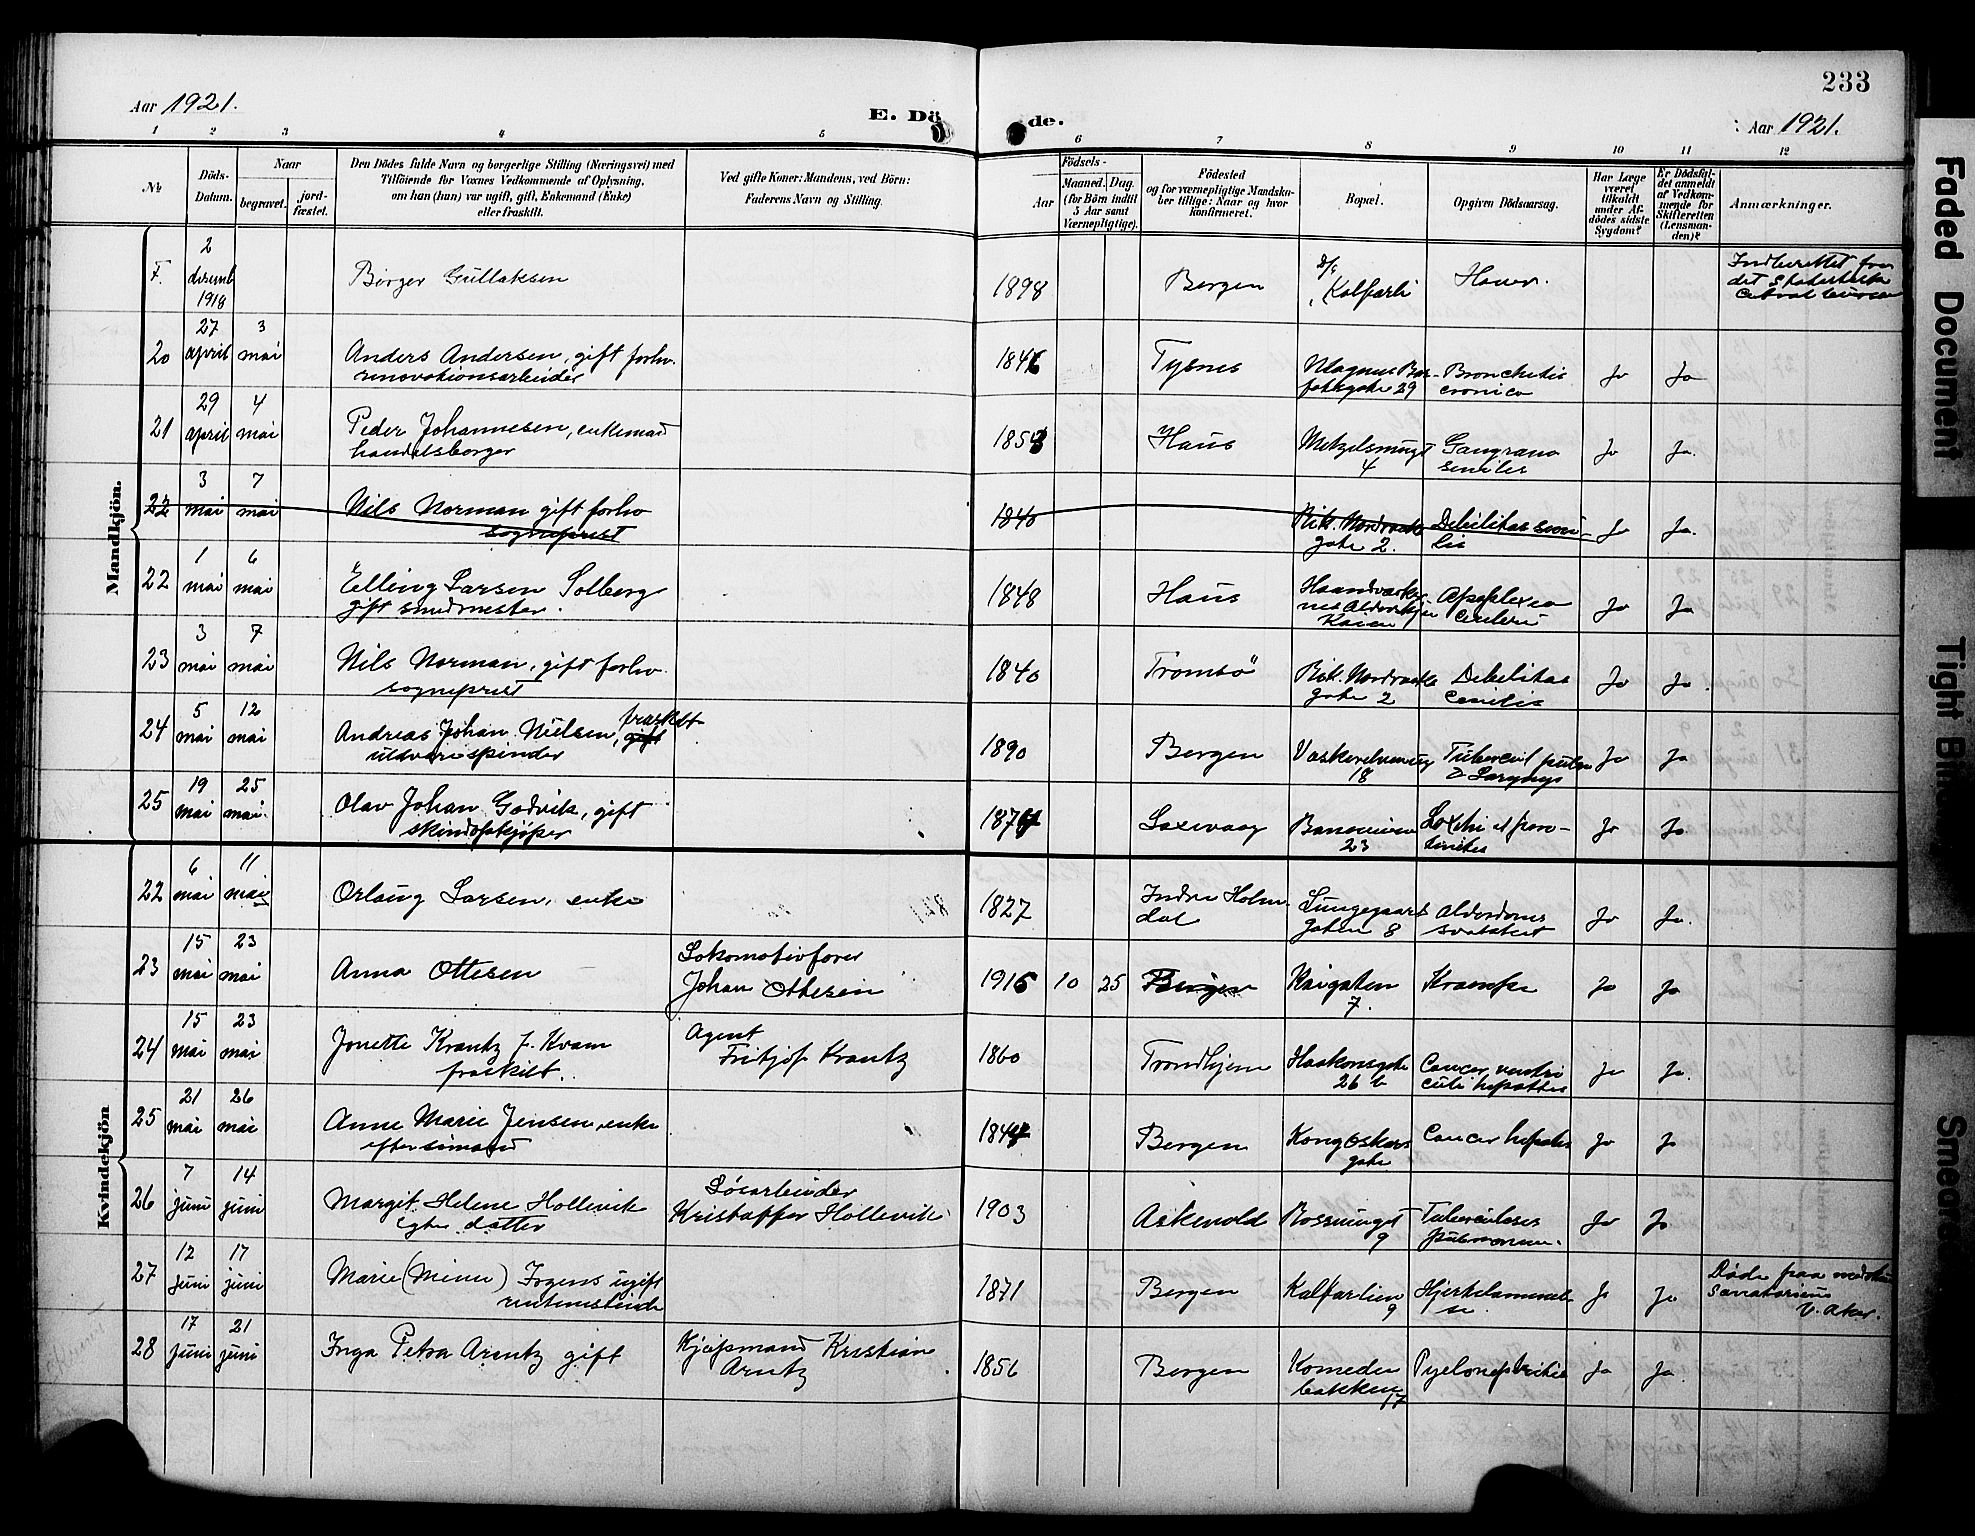 Aar 1921.
E. Dö de.
233
Aar 1921.
1 2 3 4 5 6 7 8 9 10 11 12
No
Döds-
Datum.
Naar
begravet.
jord-
fæstet.
Den Dödes fulde Navn og borgerlige Stilling (Næringsvei) med
Tilföiende for Voxnes Vedkommende af Oplysning,
om han (hun) var ugift, gift, Enkemand (Enke)
eller fraskilt.
Ved gifte Koner: Mandens, ved Börn:
Faderens Navn og Stilling.
Födsels-
Aar
Maaned. Dag.
(for Börn indtil
5 Aar samt
Værnepligtige).
Födested
og for værnepligtige Mandska-
ber tillige: Naar og hvor
konfirmeret.
Bopæl.
Opgiven Dödsaarsag.
Har Læge
været
tilkaldt
under Af-
dödes sidste
Sygdom?
Er Dödsfal-
det anmeldt
af Vedkom-
mende for
Skifteretten
(Lensman-
den)?
Anmærkninger.
Mandkjön.
F. 2 1918 Birger Gullaksen 1898 Bergen Kalfarli
Indberettet fra
det
20 27 april 3 mai Anders Andersen, gift forhv.
renovationsarbeider
1846 Tysnes Magnus Bar-
29
Bronchitis
cronica
Ja Ja
21 29 april 4 mai Peder Johannesen, enkemand
handelsborger
1853 Haus
4
senilis
Ja Ja.
22 3 mai 7 mai Nils Norman gift forhv
sogneprest
1840 Rik. Nordraaks
gate 2.
Debilitas seni-
lis
Ja Ja.
22 1 mai 6 mai Elling Larsen Solberg
gift smedmester.
1848 Haus
Ja Ja
23 3 mai 7 mai Nils Norman, gift forhv.
sogneprest
1840 Tromsö Rik. Nordraaks
gate 2
Debilitas
Ja Ja.
24 5 mai 12 mai Andreas Johan Nielsen, gift fraskilt
1890 Bergen
18
Tubercul pulm
& Laryngs
Ja Ja
25 19 mai 25 mai. Olav Johan Godvik, gift
1874
23
Ja Ja
Kvindekjön
22 6 mai 11 mai Orlaug Larsen, enke
1827 Indre Holm
dal
Lungegaards
gaten 8
Alderdoms
svakhet
Ja Ja.
23 15 mai 23 mai Anna Ottesen
Lokomotivfører
Johan Ottesen
1916 10 25 Bergen
7.
Krampe Ja Ja
24 15 mai 23 mai Jonette Krantz f. Kvam
fraskilt.
Agent
Fritjof Krantz
1860 Trondhjem Haakonsgate
26 b
Cancer ventri
culi hepattis
Ja Ja.
25 21 mai 26 mai Anne Marie Jensen, enke
efter sømand
1844 Bergen Kong Oskars
gate
Cancer hepatis Ja Ja
26 7 juni 14 juni Margit Helene Hollevik
egte datter
Løsarbeider
Kristoffer Hollevik
1903 Askevold
9
Tuberculosis
pulmonum.
Ja Ja
27 12 juni 17 juni Marie (Mimi) Irgens ugift
1871 Bergen Kalfarlien
9
Ja Ja
Døde paa
sanatorium
V. Aker.
28 17 juni 21 juni Inga Petra Arentz gift
Kjøpmand Kristian
Arntz
1856 Bergen Komedie
bakken
17
Pyelonephritis Ja Ja.
Faded Document
Tight
Smeared